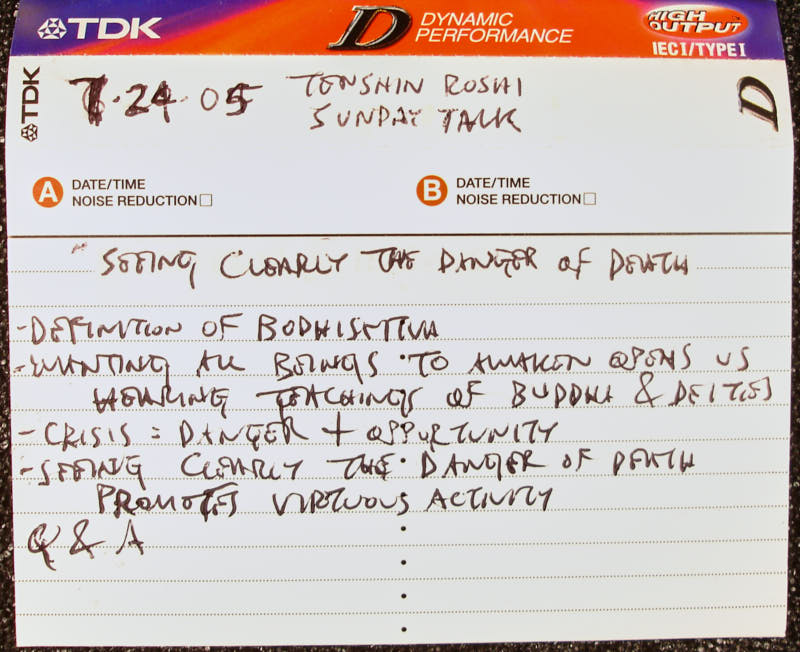 TDK
D DYNAMIC PERFORMANCE
HIGH OUTPUT
IEC I/TYPE I
TDK
7.24.05 TENSHIN ROSHI
SUNDAY TALK
D
A DATE/TIME
NOISE REDUCTION
B DATE/TIME
NOISE REDUCTION
" SEEING CLEARLY THE DANGER OF DEATH
-DEFINITION OF BODHISATTVA
-WANTING ALL BEINGS TO AWAKEN OPENS US
HEARING TEACHINGS OF BUDDHA & DEITIES
-CRISIS = DANGER + OPPURTUNITY
-SEEING CLEARLY THE DANGER OF DEATH
PROMOTES VIRTUOUS ACTIVITY
Q & A